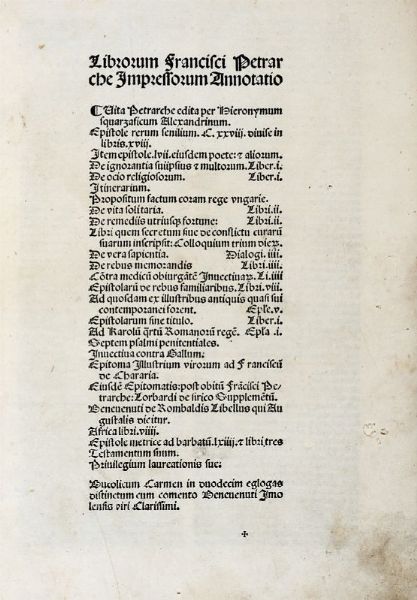 Librorum Francisci Petrar
che Impressorum Annotatio
Uita Petrarche edita per Hieronymum
squarzaficum Alexandrinum.
Epistole rerum senilium. C. xxviii. diuise in
libris. xviii.
Item epistole. lvii. eiusdem poete: ⁊ aliorum.
De ignorantia suiipsius ⁊ multorum. Liber. i.
De ocio religiosorum. Liber. i.
Itinerarium.
Propositum factum coram rege vngarie.
De vita solitaria. Libri. ii.
De remediis utriusqꝫ fortune: Libri. ii.
Libri quem secretum siue de conflictu curarū
suarum inscripsit: Colloquium trium dieꝝ.
De vera sapientia. Dialogi. iiii.
De rebus memorandis Libri. iiii.
Cōtra medicū obiurgātē Inuectiuaꝝ. L. iiii
Epistolarū de rebus familiaribus. Libri. viii.
Ad quosdam ex illustribus antiquis quasi sui
contemporanei forent. Ep̄le. v.
Epistolarum sine titulo. Liber. i.
Ad Karolū q̄rtū Romanorū regē. Ep̄la .i.
Septem psalmi penitentiales.
Inuectiua contra Gallum:
Epitoma Illustrium virorum ad Franciscū
de Chararia.
Eiusdē Epitomatis: post obitū Frācisci Pe-
trarche: Lorbardi de sirico Supplemētū.
Beneuenuti de Rombaldis Libellus qui Au
gustalis dicitur.
Africa libri. viiii.
Epistole metrice ad barbatū. lxiiii. ⁊ libri tres
Testamentum suum.
Priuilegium laureationis sue:
Bucolicum Carmen in duodecim eglogas
distinctum cum comento Beneuenuti Imo
lensis viri Clarissimi.